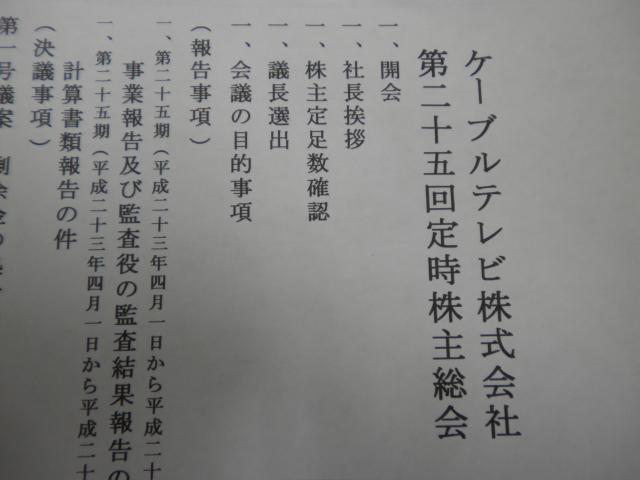 ケーブルテレビ株式会社
第二十五回定時株主総会
一、開会
一、社長挨拶
一、株主定足数確認
一、議長選出
一、会議の目的事項
（報告事項）
一、第二十五期（平成二十三年四月一日から平成二十
事業報告及び監査役の監査結果報告の
一、第二十五期（平成二十三年四月一日から平成二十
計算書類報告の件
（決議事項）
第一号議案 剰余金の